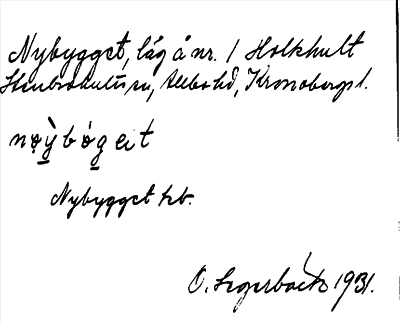 Nybygget, låg å nr. 1 Holkhult
Stenbrohults sn, Allbo hd, Kronobergs l.
Nybygget hb.
O. Segerbäck 1931.